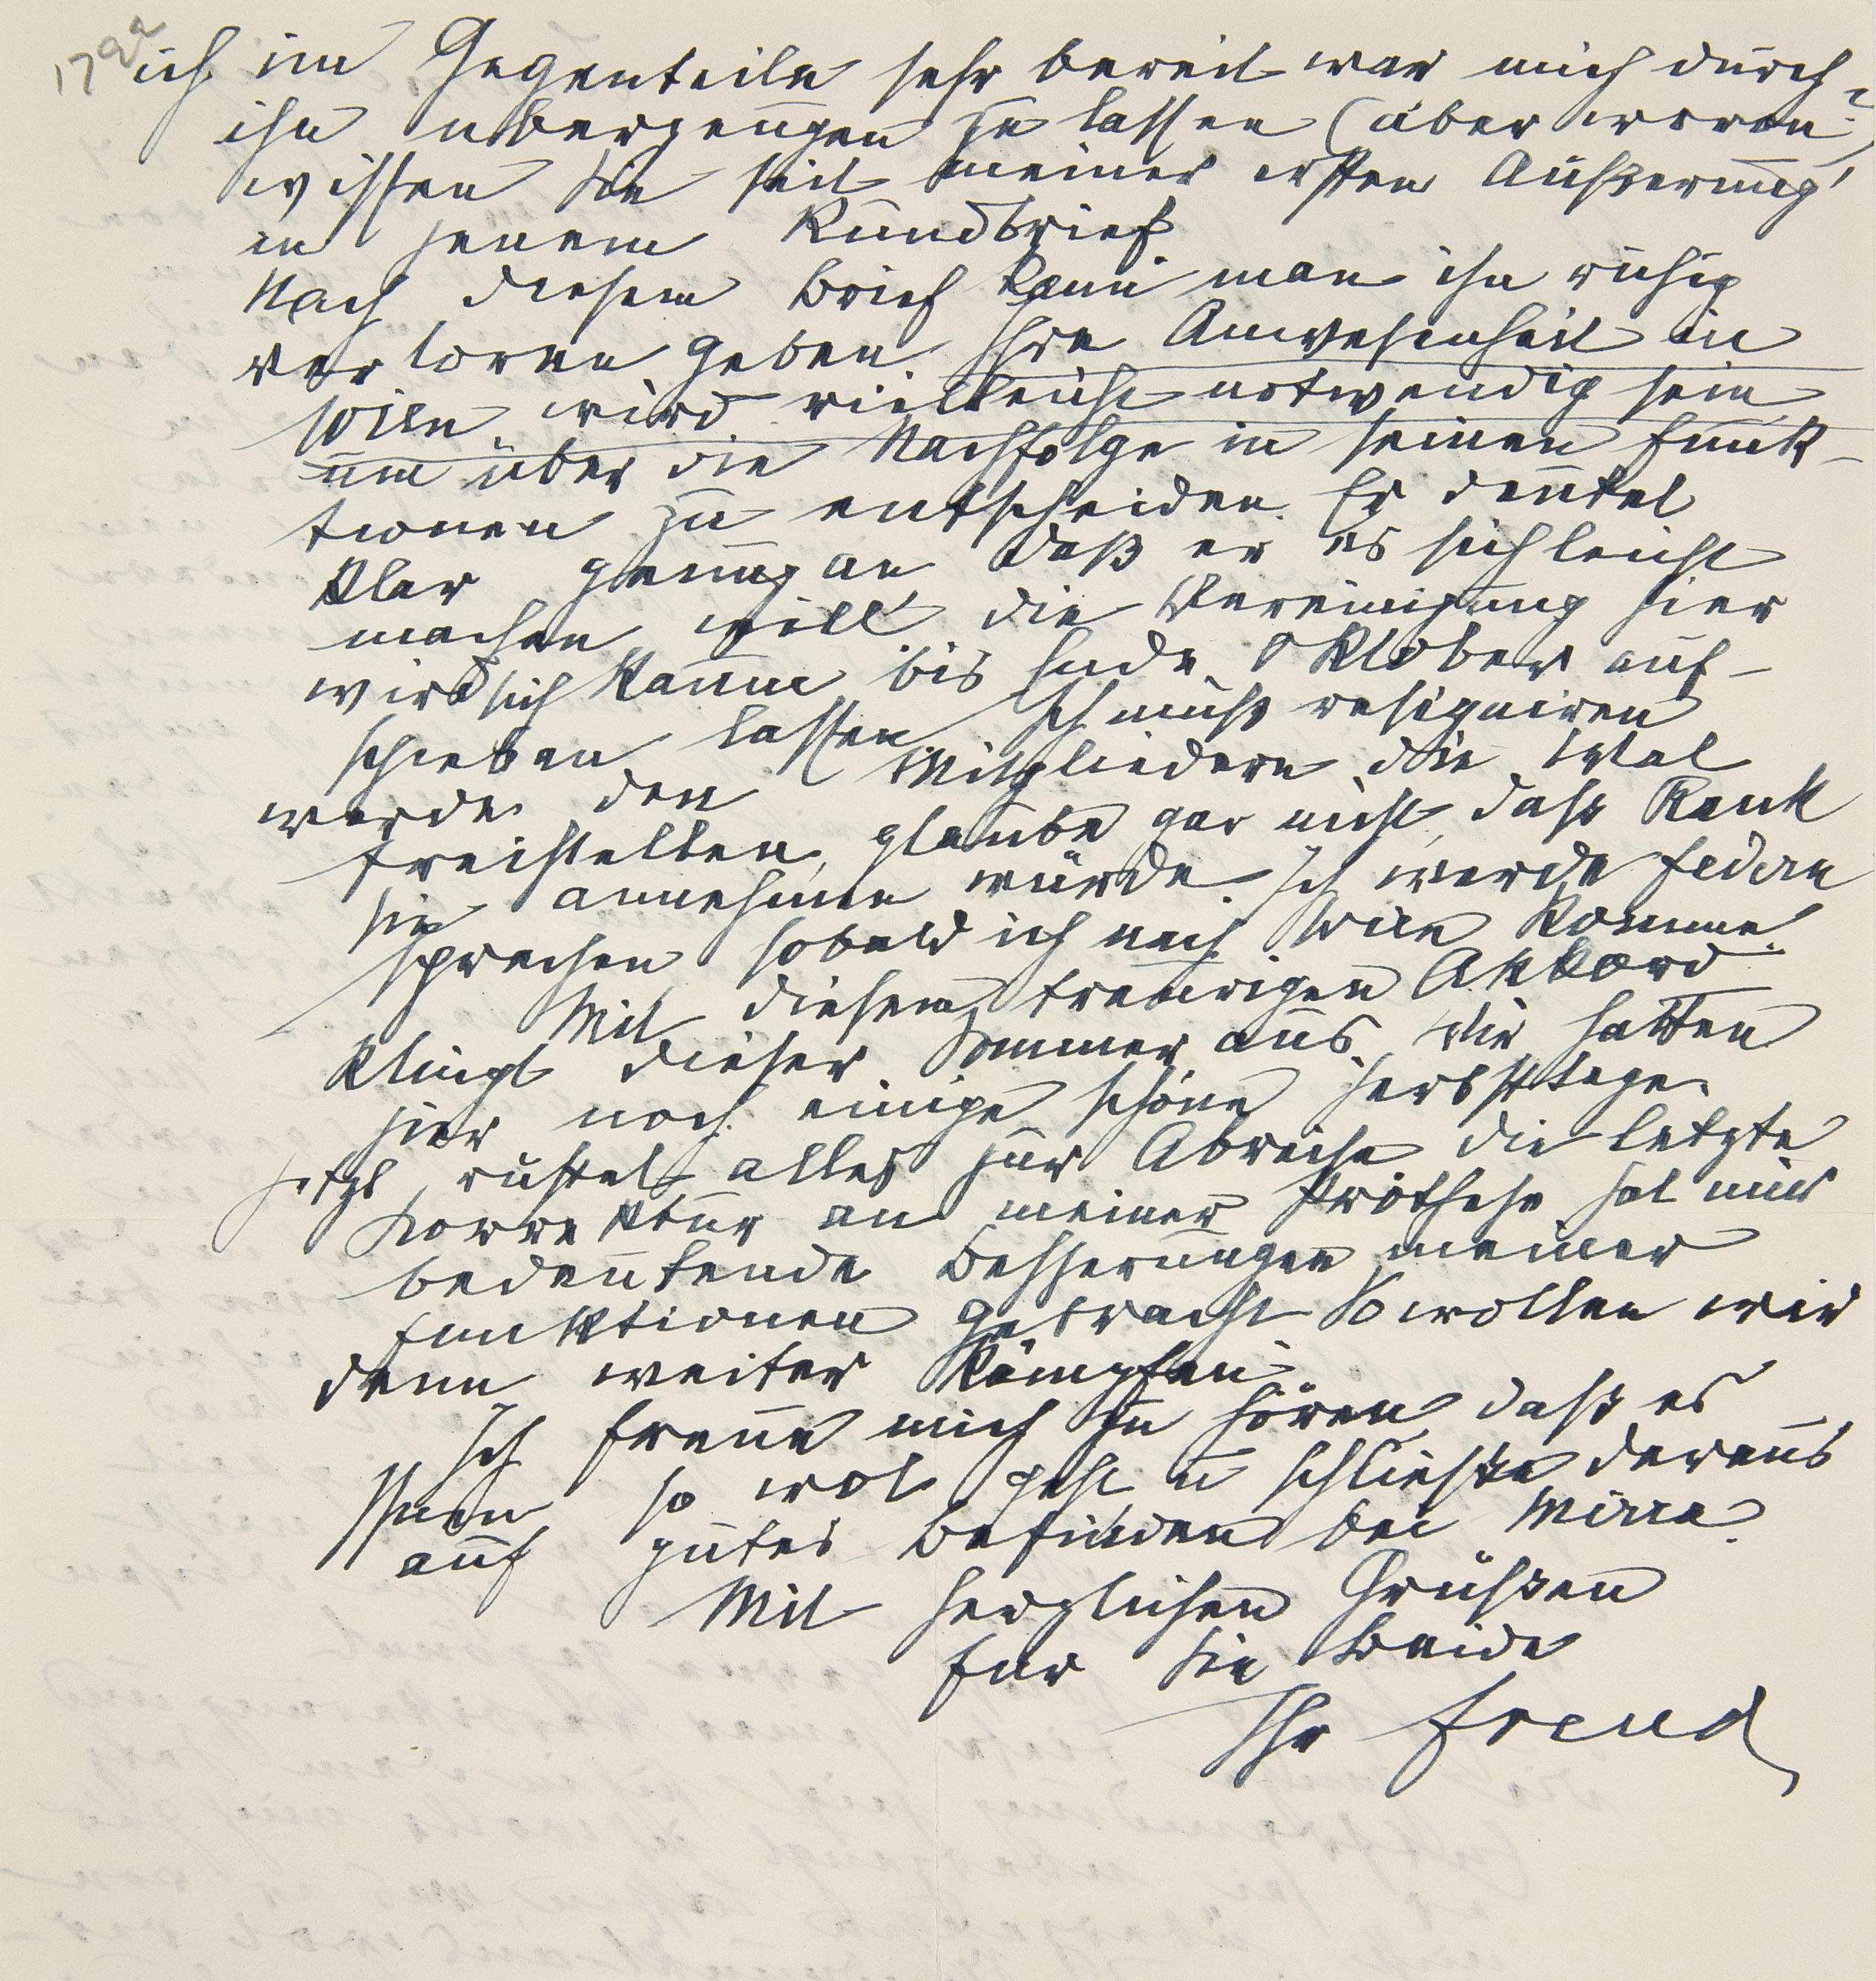 179a
ich im Gegenteile sehr bereit war mich durch
ihn überzeugen zu lassen (aber wovon?)
wissen Sie seit meiner ersten Äußerung
in jenem Rundbrief
Nach diesem Brief kann man ihn ruhig
verloren geben. Ihre Anwesenheit in
Wien wird vielleicht notwendig sein
um über die Nachfolge in seinen Funk-
tionen zu entscheiden. Er deutet
klar genug an, daß er es sich leicht
machen will, die Vereinigung hier
wird sich kaum bis Ende Oktober auf-
schieben lassen. Ich muß resigniren
werde den Mitgliedern die Wal
freistellen, glaube gar nicht, daß Rank
sie annehmen würde. Ich werde Federn
sprechen sobald ich nach Wien komme.
Mit diesem traurigen Akkord
klingt dieser Sommer aus. Wir hatten
hier noch einige schöne Herbsttage.
Jetzt rüstet alles zur Abreise die letzte
Korrektur an meiner Prothese hat mir
bedeutende Besserungen meiner
Funktionen gebracht. So wollen wir
denn weiter kämpfen.
Ich freue mich zu hören, daß es
Ihnen so wol geht, u schließe daraus
auf gutes Befinden bei Mirra.
Mit herzlichen Grüßen
für Sie beide
Ihr Freud